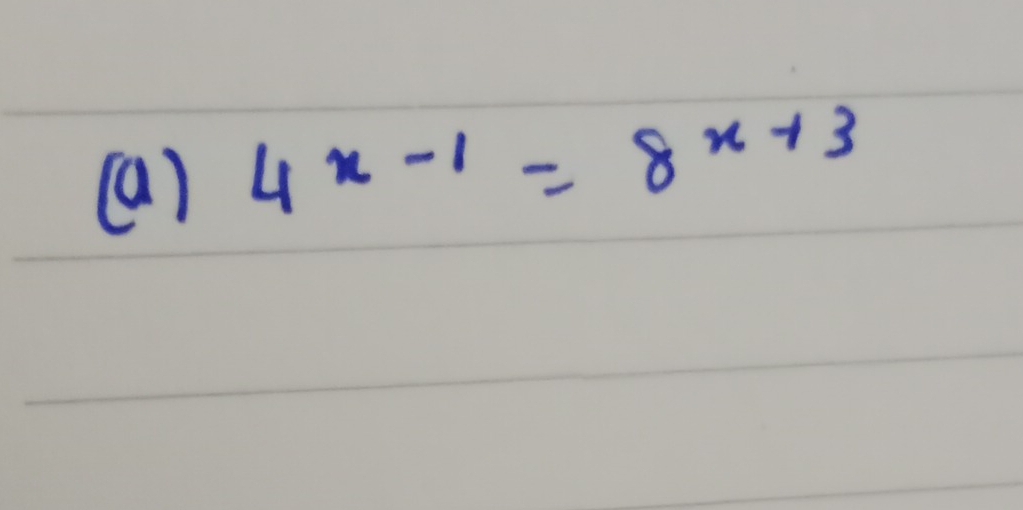 (a) 4^{x-1} = 8^{x+3}